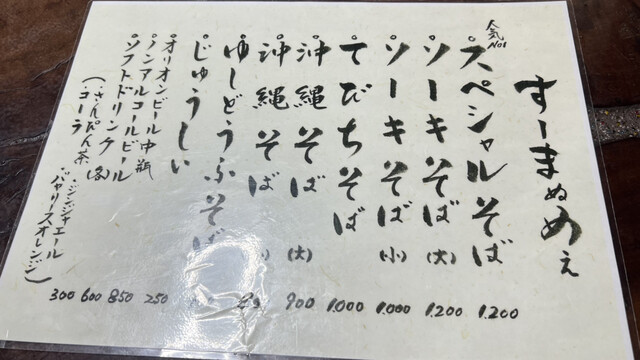 すーまぬめぇ
人気No1
・スペシャルそば 1.200
・ソーキそば(大) 1.200
・ソーキそば(小) 1.000
・てびちそば 1.000
・沖縄そば(大) 900
・沖縄そば
・ゆしどうふそば
・じゅうしい 250
・オリオンビール中瓶 850
・ノンアルコールビール 600
・ソフトドリンク(各) 300
(・さんぴん茶
・コーラ
・ジンジャエール
・バヤリースオレンジ)